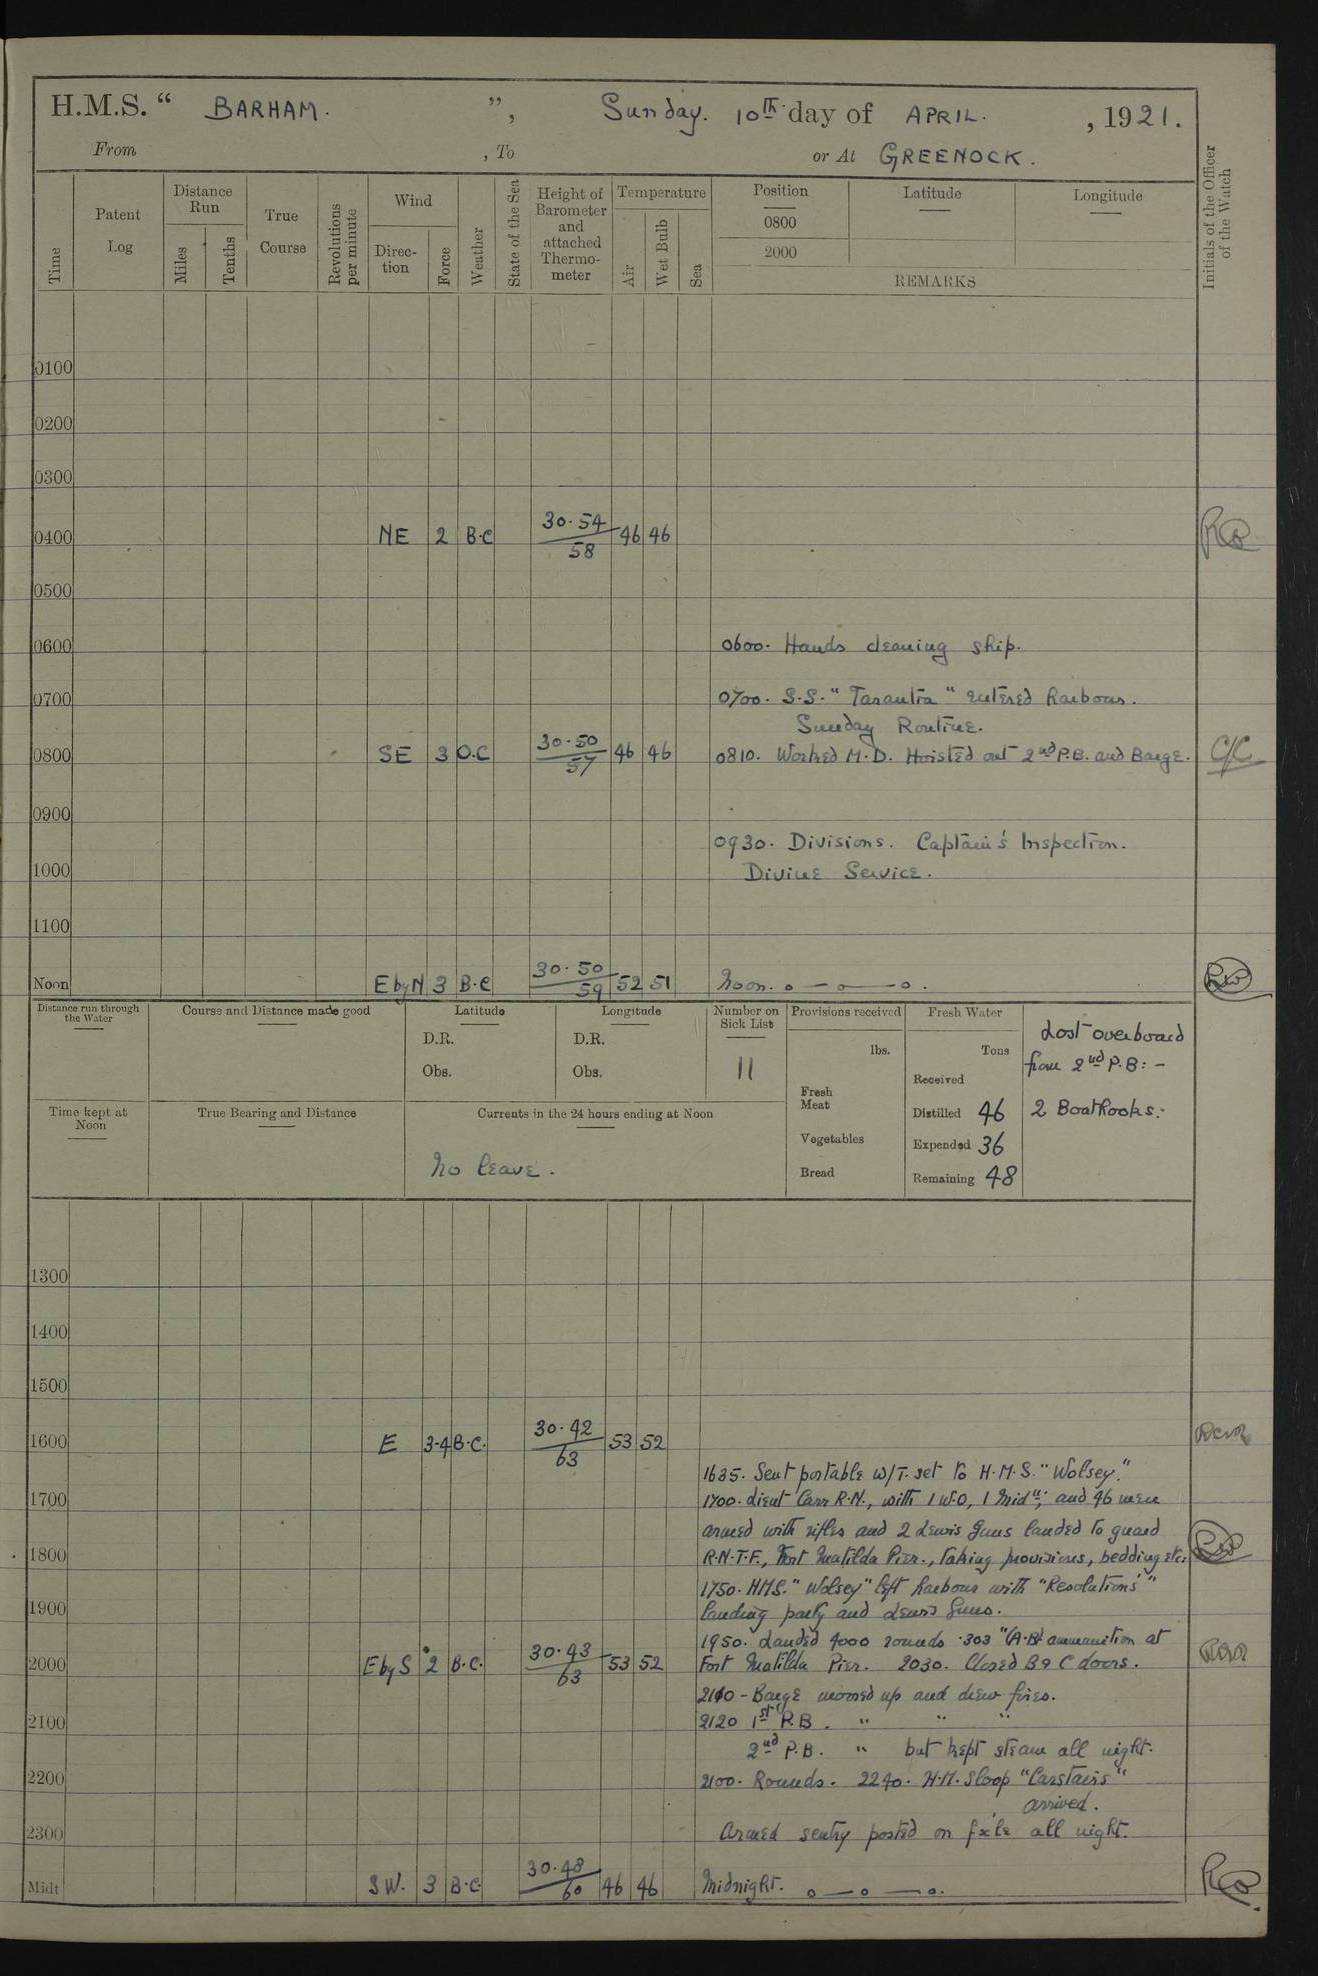 H.M.S. “ BARHAM. ”, Sunday. 10th day of APRIL. , 1921.
From , To or At GREENOCK.
Time Patent Log Distance Run Miles Tenths True Course Revolutions per minute Wind Direc-tion Force Weather State of the Sea Height of Barometer and attached Thermo-meter Temperature Air Wet Bulb Sea Position Latitude Longitude Initials of the Officer of the Watch
0800
2000
REMARKS
0100
0200
0300
0400 NE 2 B.C 30.54 58 46 46
0500
0600 0600. Hands cleaning ship.
0700 0700. S.S. " " entered harbour.
Sunday Routine.
0800 SE 3 O.C 30.50 57 46 46 0810. Worked M.D. Hoisted out 2nd P.B. and Barge. C/C
0900
0930. Divisions. Captain's Inspection.
1000 Divine Service.
1100
Noon E by N 3 B.C 30.50 59 52 51 Noon.
Distance run through the Water Course and Distance made good Latitude Longitude Number on Sick List Provisions received Fresh Water Lost overboard
D.R. D.R. lbs. Tons from 2nd P.B: -
Obs. Obs. 11 Received
Fresh Meat
Time kept at Noon True Bearing and Distance Currents in the 24 hours ending at Noon Distilled 46 2 Boathooks.
Vegetables Expended 36
No leave. Bread Remaining 48
1300
1400
1500
1600 E 3-4 B.C. 30.42 63 53 52
1635. Sent portable W/T. set to H.M.S. "Wolsey."
1700 1700. Lieut Carr R.N., with 1 W.O, 1 Midn; and 46 men
armed with rifles and 2 Lewis Guns landed to guard
1800 R.N.T.F., Fort Matilda Pier., taking provisions, bedding etc.
1750. HMS. "Wolsey" left harbour with "Resolution's"
1900 landing party and Lewis Guns.
1950. Landed 4000 rounds .303 ammunition at
2000 E by S 2 B.C. 30.43 63 53 52 Fort Matilda Pier. 2030. Closed B & C doors.
2110 - Barge moored up and drew fires.
2100 2120 1st P.B. " " "
2nd P.B. " but kept steam all night.
2200 2100. Rounds. 2240. H.M. Sloop "Carstairs"
arrived.
2300 Armed sentry posted on fx'le all night.
Midt SW. 3 B.C. 30.48 60 46 46 Midnight.